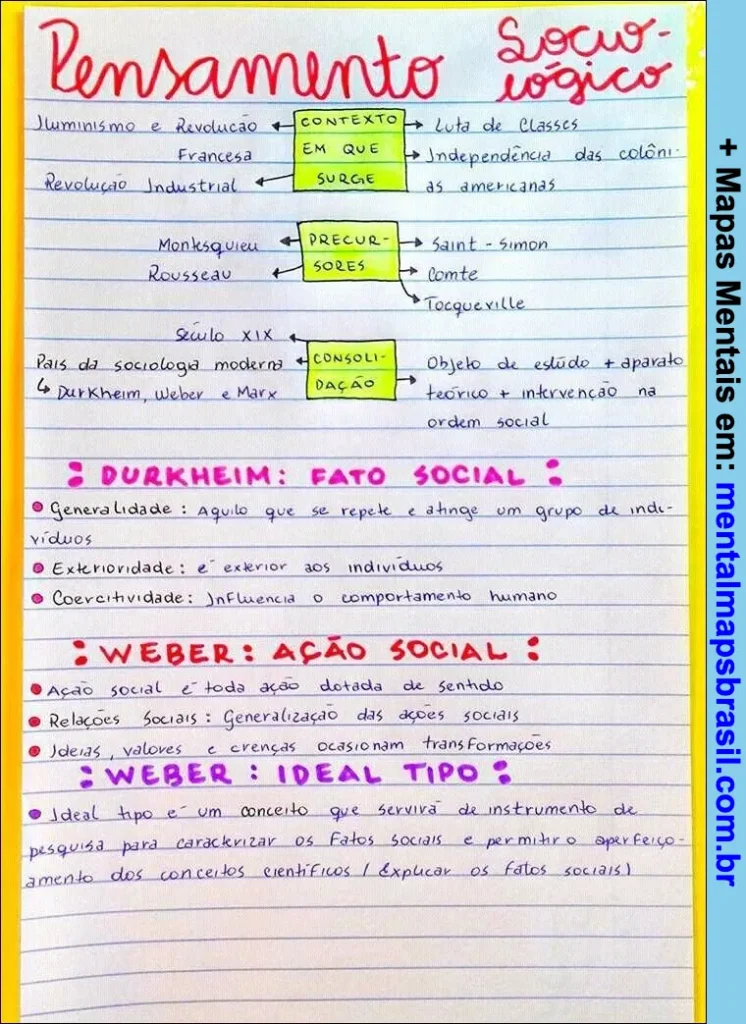 Pensamento Socio-
lógico
Iluminismo e Revolucão
Francesa
Revolução Industrial
CONTEXTO
EM QUE
SURGE
Luta de Classes
Independência das colôni-
as americanas
Montesquieu
Rousseau
PRECUR-
SORES
Saint-Simon
Comte
Tocqueville
Século XIX
Pais da sociologia moderna
↳ Durkheim, Weber e Marx
CONSOLI-
DAÇÃO
Objeto de estudo + aparato
teórico + intervenção na
ordem social
: DURKHEIM: FATO SOCIAL :
• Generalidade: Aquilo que se repete e atinge um grupo de indi-
víduos
• Exterioridade: é exterior aos indivíduos
• Coercitividade: Influencia o comportamento humano
: WEBER: AÇÃO SOCIAL :
• Ação social é toda ação dotada de sentido
• Relações Sociais: Generalização das ações sociais
• Ideias, valores e crenças ocasionam transformações
: WEBER: IDEAL TIPO :
• Ideal tipo é um conceito que servirá de instrumento de
pesquisa para caracterizar os fatos sociais e permitir o aperfeiço-
amento dos conceitos científicos (Explicar os fatos sociais)
+ Mapas Mentais em: mentalmapsbrasil.com.br